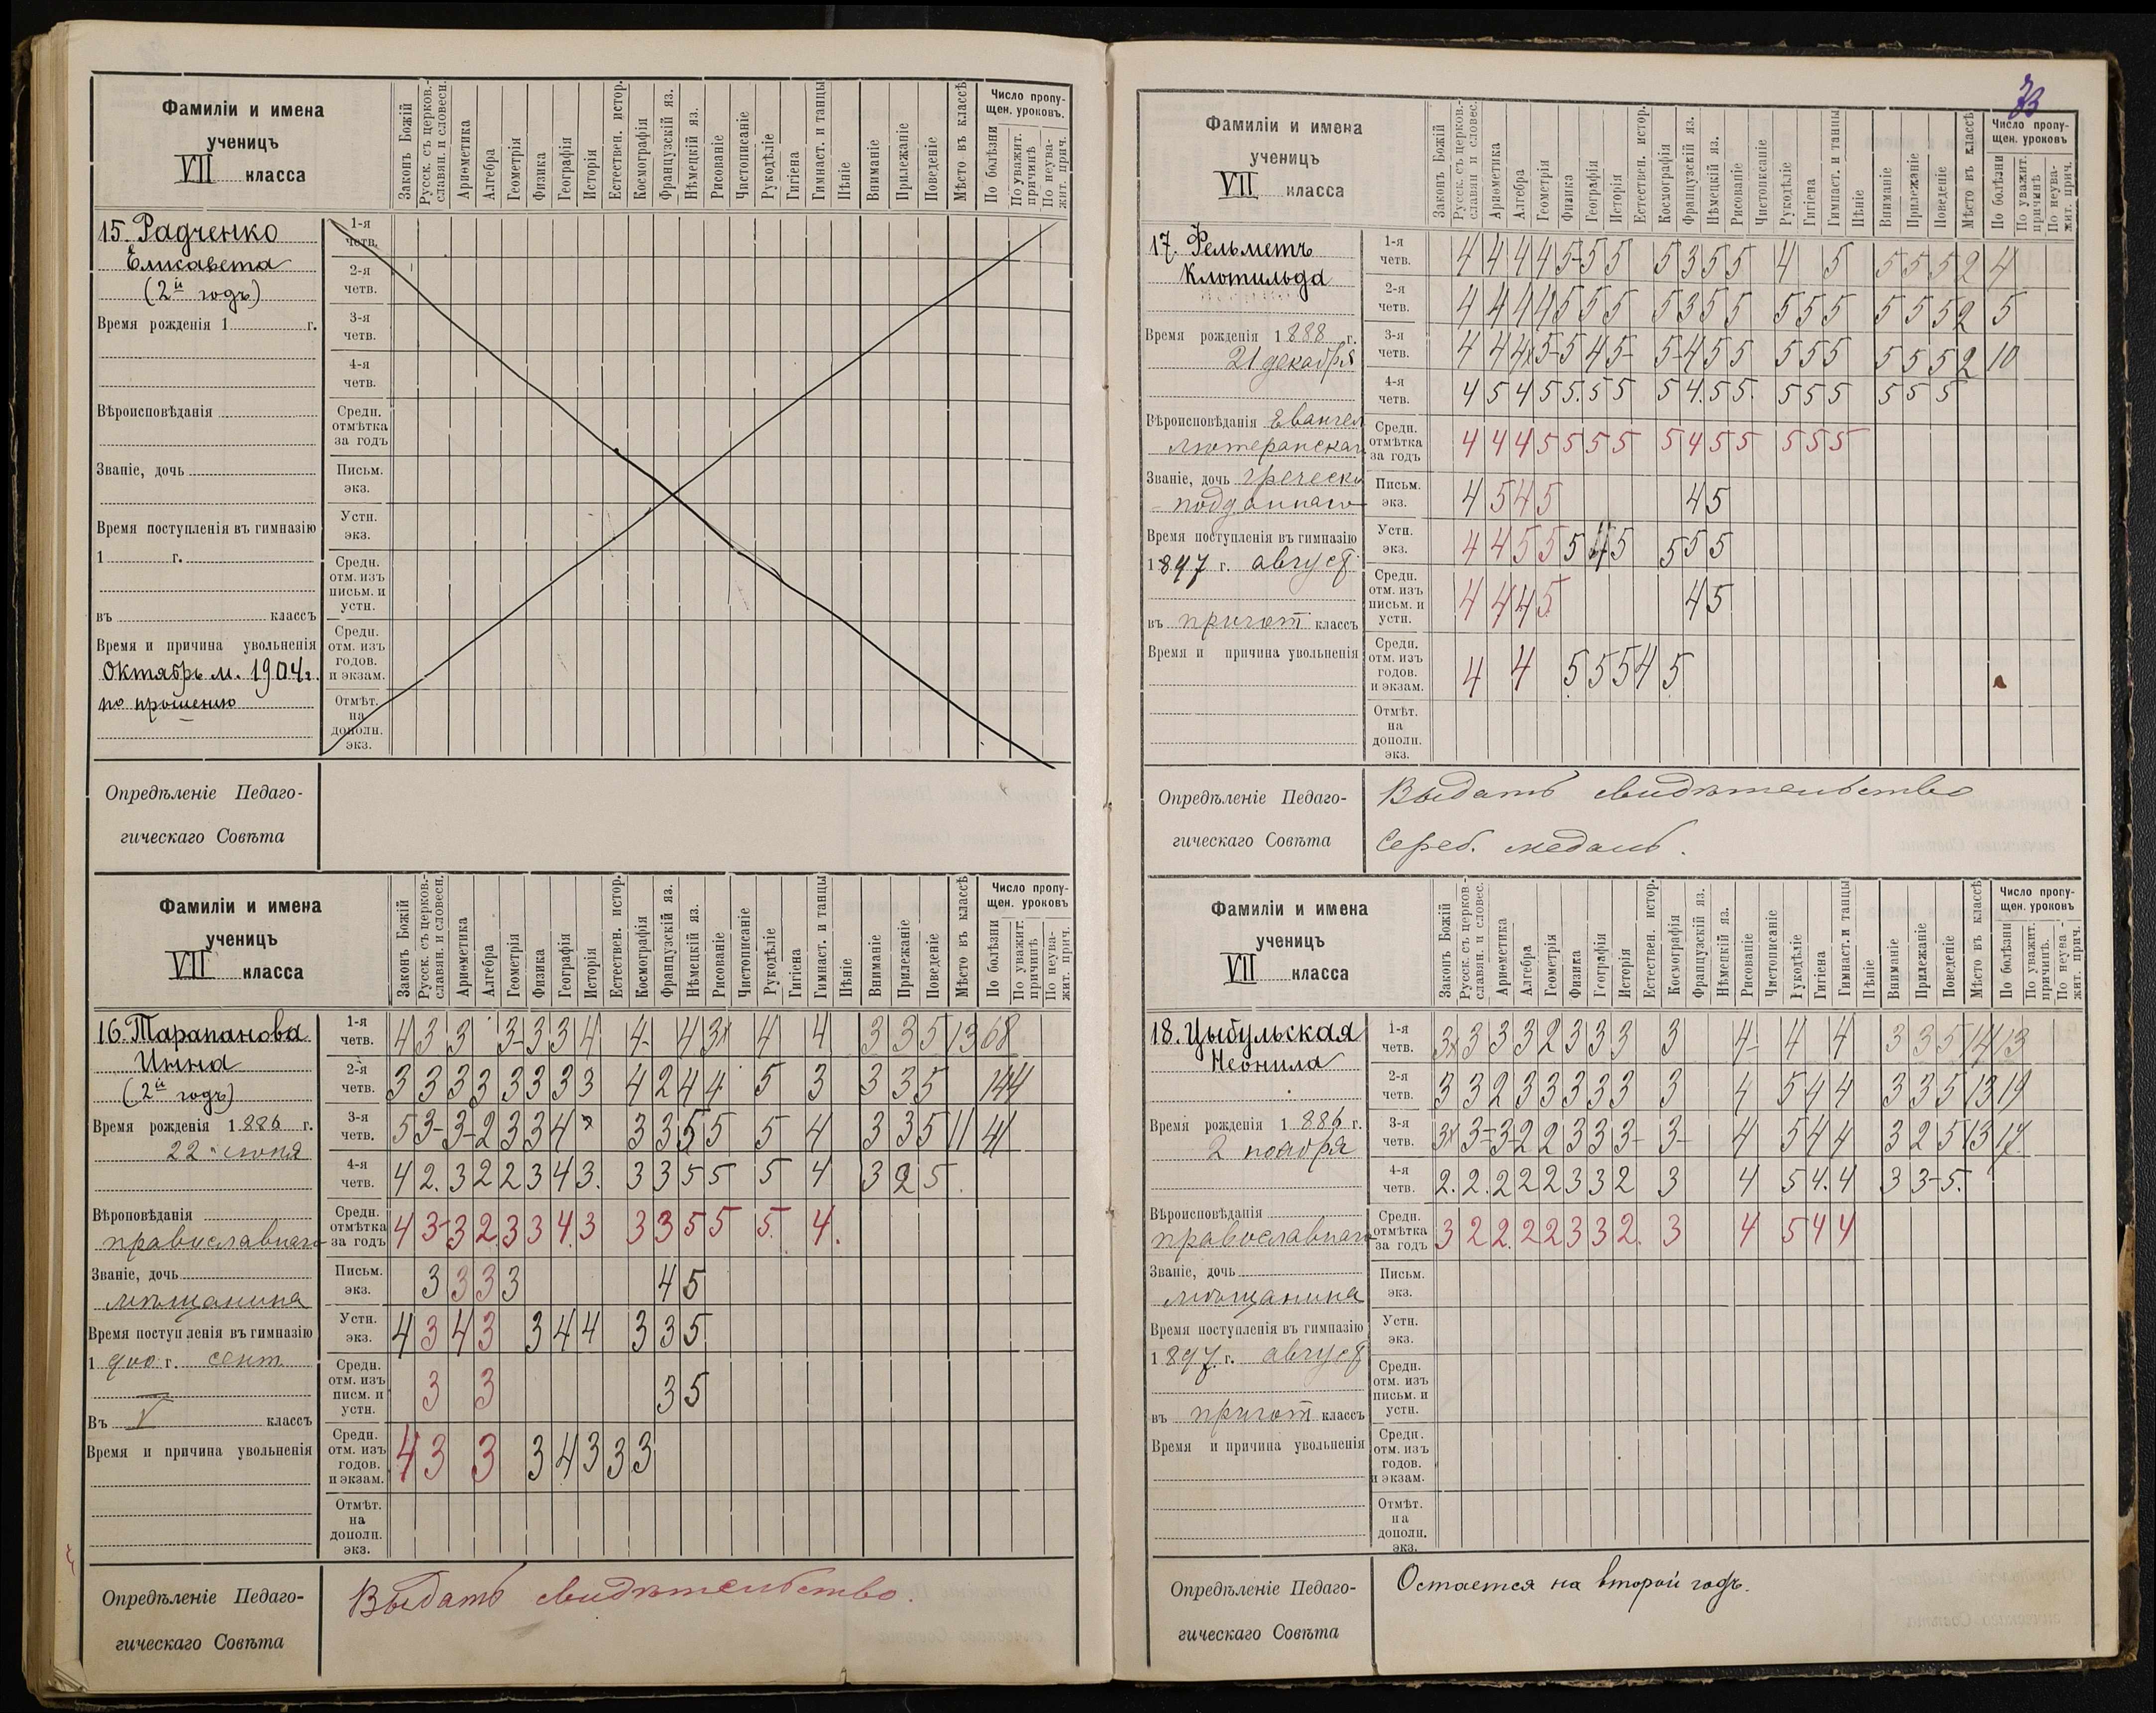 Фамиліи и имена
ученицъ
VII класса
Законъ Божій
Русск. съ церков.-
славян. и словесн.
Ариѳметика
Алгебра
Геометрія
Физика
Географія
Исторія
Естествен. истор.
Космографія
Французскій яз.
Нѣмецкій яз.
Рисованіе
Чистописаніе
Рукодѣліе
Гигіена
Гимнаст. и танцы
Пѣніе
Вниманіе
Прилежаніе
Поведеніе
Мѣсто въ классѣ
Число пропу-
щен. уроковъ.
По болѣзни
По уважит.
причинѣ
По неува-
жит. прич.
15. Радченко
Елисавета
(2й годъ)
Время рожденія 1 г.
Вѣроисповѣданія
Званіе, дочь
Время поступленія въ гимназію
1 г.
въ классъ
Время и причина увольненія
Октябрь м. 1904 г.
по прошенію
1-я
четв.
2-я
четв.
3-я
четв.
4-я
четв.
Средн.
отмѣтка
за годъ
Письм.
экз.
Устн.
экз.
Средн.
отм. изъ
письм. и
устн.
Средн.
отм. изъ
годов.
и экзам.
Отмѣт.
на
дополн.
экз.
Опредѣленіе Педаго-
гическаго Совѣта
Фамиліи и имена
ученицъ
VII класса
Законъ Божій
Русск. съ церков.-
славян. и словесн.
Ариѳметика
Алгебра
Геометрія
Физика
Географія
Исторія
Естествен. истор.
Космографія
Французскій яз.
Нѣмецкій яз.
Рисованіе
Чистописаніе
Рукодѣліе
Гигіена
Гимнаст. и танцы
Пѣніе
Вниманіе
Прилежаніе
Поведеніе
Мѣсто въ классѣ
Число пропу-
щен. уроковъ
По болѣзни
По уважит.
причинѣ
По неува-
жит. прич.
16. Тарапанова
Инна
(2й годъ)
Время рожденія 1886 г.
22 іюня
Вѣроповѣданія
православнаго
Званіе, дочь
мѣщанина
Время поступленія въ гимназію
1900 г. сент
Въ V классъ
Время и причина увольненія
1-я
четв. 4 3 3 3- 3 3 4 4- 4 3 4 4 3 3 5 13 68
2-я
четв. 3 3 3 3 3 3 3 3 4 2 4 4 5 3 3 3 5 144
3-я
четв. 5 3- 3- 2 3 3 4 3 3 5 5 5 4 3 3 5 11 41
4-я
четв. 4 2. 3 2 2 3 4 3. 3 3 5 5 5 4 3 2 5
Средн.
отмѣтка
за годъ 4 3- 3 2 3 3 4 3 3 3 5 5 5. 4.
Письм.
экз. 3 3 3 3 4 5
Устн.
экз. 4 3 4 3 3 4 4 3 3 5
Средн.
отм. изъ
писм. и
устн. 3 3 3 5
Средн.
отм. изъ
годов.
и экзам. 4 3 3 3 4 3 3 3
Отмѣт.
на
дополн.
экз.
Опредѣленіе Педаго-
гическаго Совѣта
Выдать свидѣтельство.
73
Фамиліи и имена
ученицъ
VII класса
Законъ Божій
Русск. съ церков.-
славян и словес.
Ариѳметика
Алгебра
Геометрія
Физика
Географія
Исторія
Естествен. истор.
Космографія
Французскій яз.
Нѣмецкій яз.
Рисованіе
Чистописаніе
Рукодѣліе
Гигіена
Гимнаст. и танцы
Пѣніе
Вниманіе
Прилежаніе
Поведеніе
Мѣсто въ классѣ
Число пропу-
щен. уроковъ
По болѣзни
По уважит.
причинѣ
По неува-
жит. прич.
17. Фельметъ
Клотильда
Время рожденія 1888 г.
21 декабря
Вѣроисповѣданія Евангел
лютеранскаго
Званіе, дочь греческ
подданнаго
Время поступленія въ гимназію
1897 г. август
въ пригот классъ
Время и причина увольненія
1-я
четв. 4 4 4 4 5- 5 5 5 3 5 5 4 5 5 5 5 2 4
2-я
четв. 4 4 4 4 5 5 5 5 3 5 5 5 5 5 5 5 5 2 5
3-я
четв. 4 4 4 5- 5 4 5- 5- 4 5 5 5 5 5 5 5 5 2 10
4-я
четв. 4 5 4 5 5. 5 5 5 4. 5 5. 5 5 5 5 5 5
Средн.
отмѣтка
за годъ 4 4 4 5 5 5 5 5 4 5 5 5 5 5
Письм.
экз. 4 5 4 5 4 5
Устн.
экз. 4 4 5 5 5 4 5 5 5 5
Средн.
отм. изъ
письм. и
устн. 4 4 4 5 4 5
Средн.
отм. изъ
годов.
и экзам. 4 4 5 5 5 4 5
Отмѣт.
на
дополн.
экз.
Опредѣленіе Педаго-
гическаго Совѣта
Выдать свидѣтельство
Сереб. медаль.
Фамиліи и имена
ученицъ
VII класса
Законъ Божій
Русск. съ церков-
славян. и словес.
Ариѳметика
Алгебра
Геометрія
Физика
Географія
Исторія
Естествен. истор.
Космографія
Французскій яз.
Нѣмецкій яз.
Рисованіе
Чистописаніе
Рукодѣліе
Гигіена
Гимнаст. и танцы
Пѣніе
Вниманіе
Прилежаніе
Поведеніе
Мѣсто въ классѣ
Число пропу-
щен. уроковъ
По болѣзни
По уважит.
причинѣ.
По неува-
жит. прич.
18. Цыбульская
Неонила
Время рожденія 1886 г.
2 ноября
Вѣроисповѣданія
православнаго
Званіе, дочь
мѣщанина
Время поступленія въ гимназію
1897 г. август
въ пригот классъ
Время и причина увольненія
1-я
четв. 3 3 3 3 2 3 3 3 3 4- 4 4 3 3 5 14 13
2-я
четв. 3 3 2 3 3 3 3 3 3 4 5 4 4 3 3 5 13 19
3-я
четв. 3 3- 3- 2 2 3 3 3- 3- 4 5 4 4 3 2 5 13 17.
4-я
четв. 2. 2. 2 2 2 3 3 2 3 4 5 4. 4 3 3- 5.
Средн.
отмѣтка
за годъ 3 2 2. 2 2 3 3 2. 3 4 5 4 4
Письм.
экз.
Устн.
экз.
Средн.
отм. изъ
письм. и
устн.
Средн.
отм. изъ
годов.
и экзам.
Отмѣт.
на
дополн.
экз.
Опредѣленіе Педаго-
гическаго Совѣта
Остается на второй годъ.